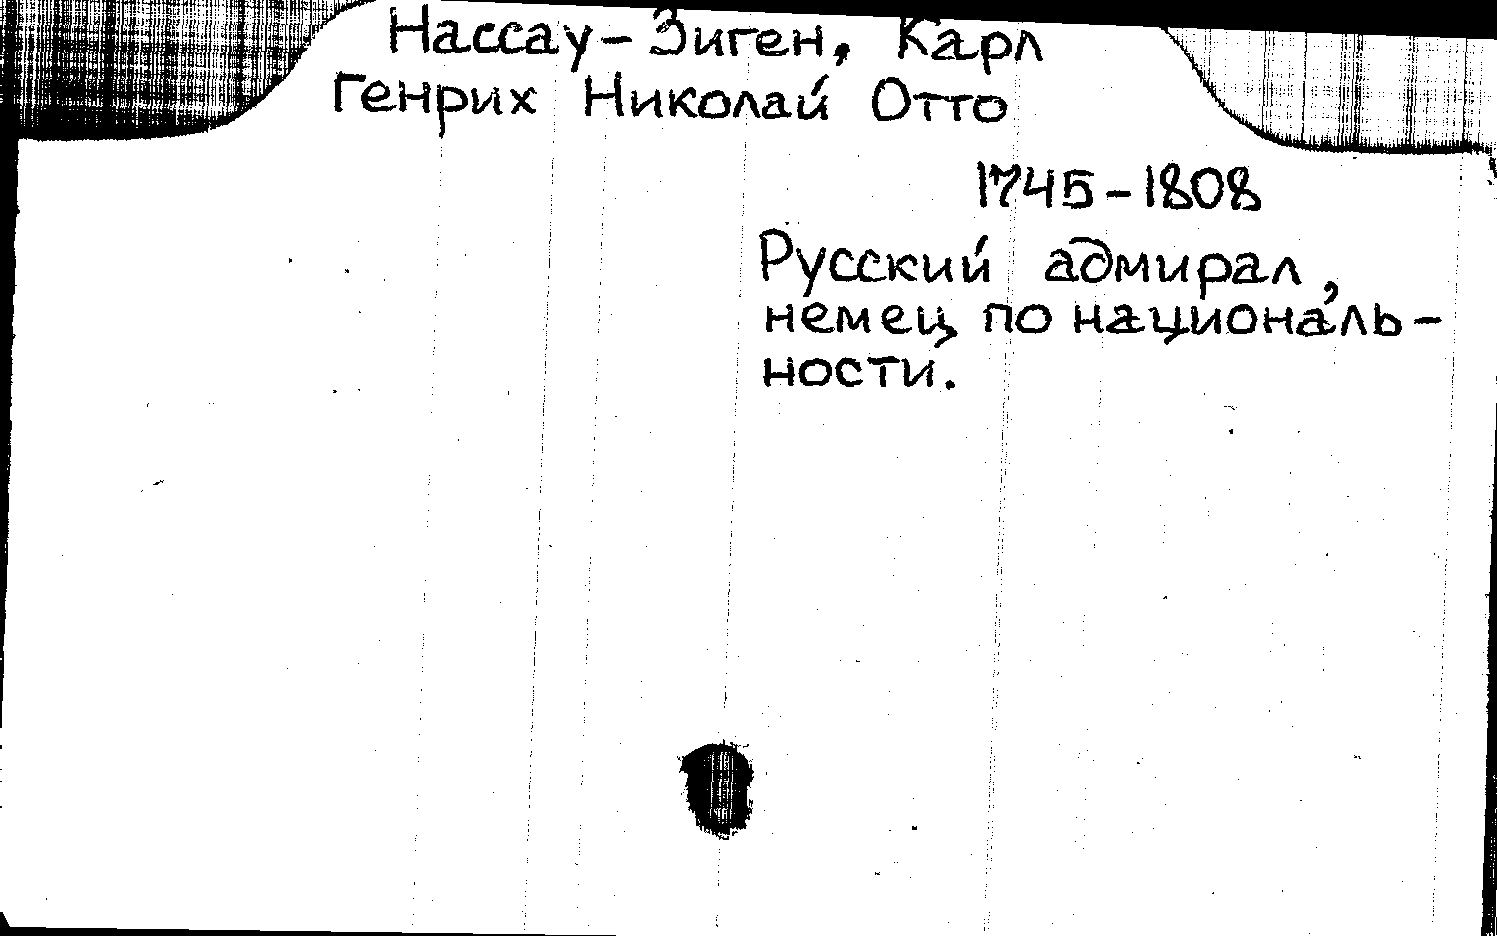 Нассау-Зиген, Карл
Генрих Николай Отто
1745-1808
Русский адмирал,
немец по националь-
ности.